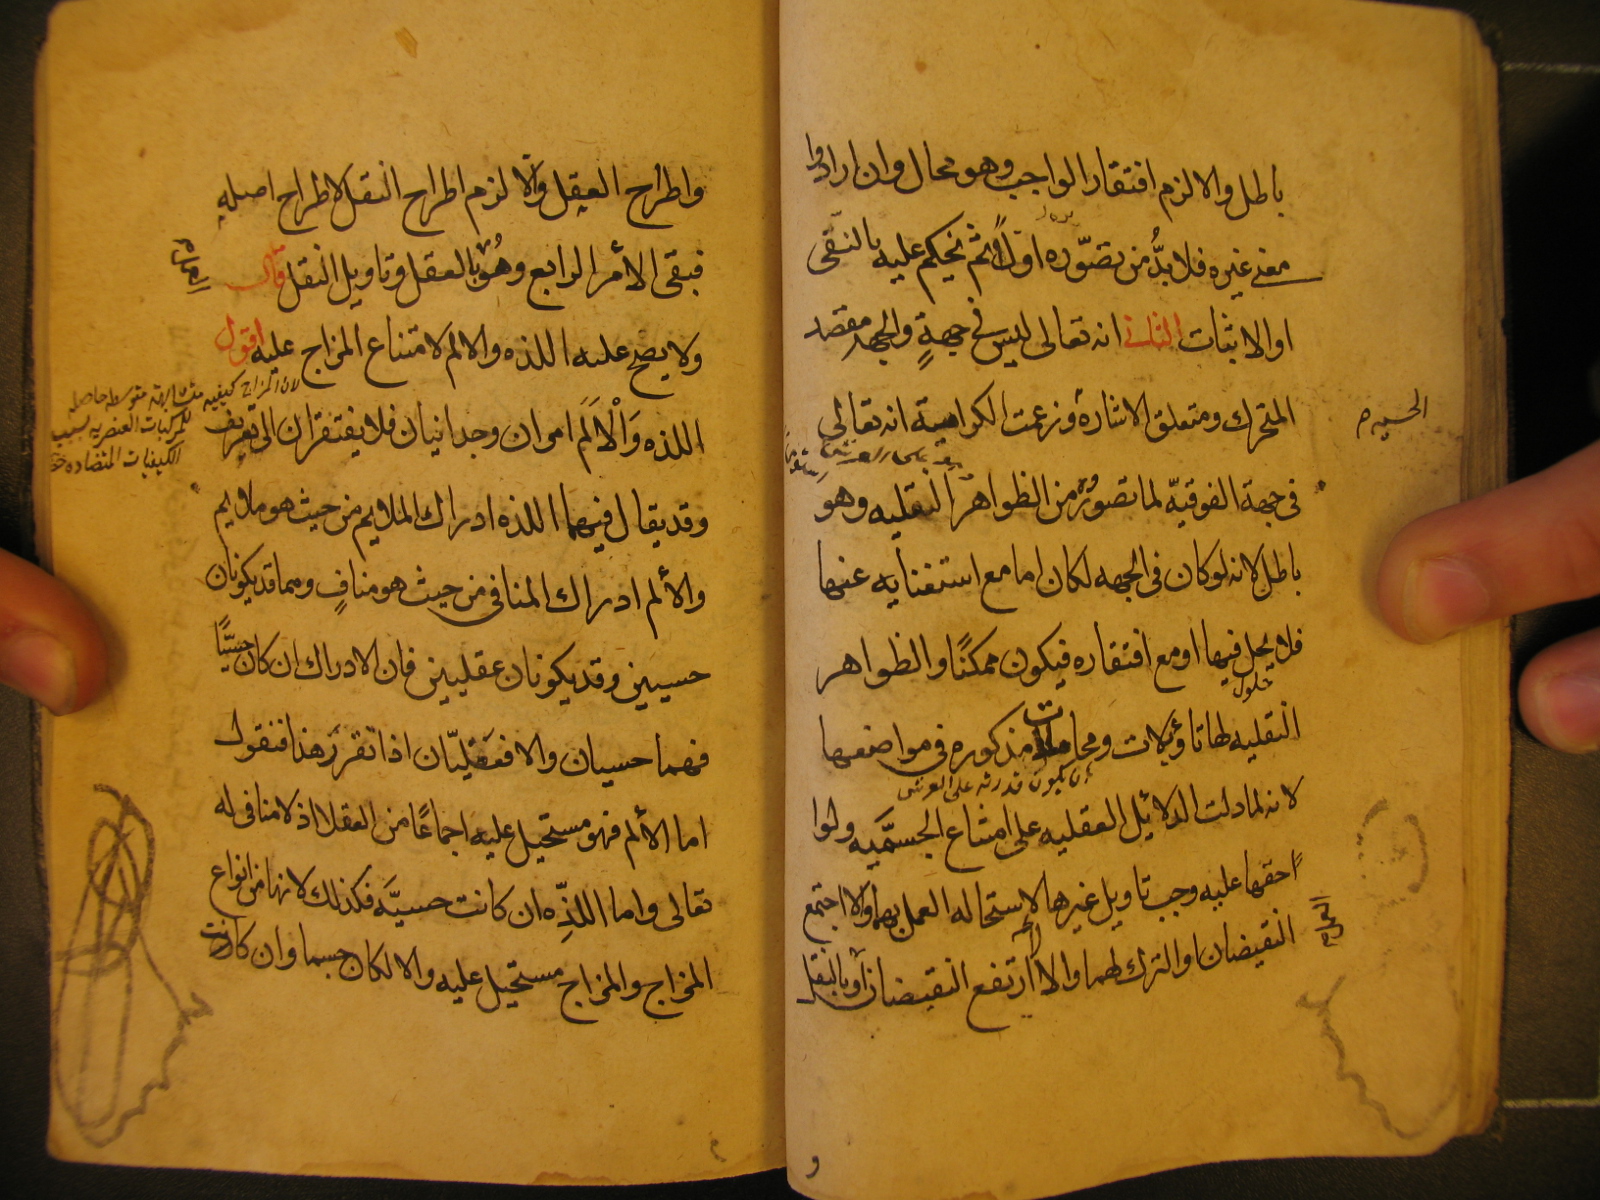 باطل والا لزم افتقار الواجب وهو محال وان ارادوا
معنى غيره فلا بدُّ من تصوّره اولاً ثم يحكم عليه بالنفى
او الاثبات الثانى انه تعالى ليس فى جهةٍ والجهه مقصد
المتحرك ومتعلق الاشارة وزعمت الكرامية انه تعالى
فى جهة الفوقيّه لما تصوروه من الظواهر النقليه وهو
باطل لانه لو كان فى الجهه لكان اما مع استغنايه عنها
فلا يحل فيها او مع افتقاره فيكون ممكنًا والظواهر
حلول
النقليه لها تاويلات ومحامل مذكوره فى مواضعها
لانه لما دلت الدلائل العقليه على امتناع الجسمّيه ولوا
حقها عليه وجب تاويل غيرها لاستحاله العمل بهما والا اجتمع
النقيضان والترك لهما والا ارتفع النقيضان او بالنقل
واطراح العقل والا لزم اطراح النقل لاطراح اصله
فبقى الأمر الرابع وهُو بالعقل وتاويل النقل قال
ولا يصح عليه اللذه والالم لامتناع المزاج عليه اقول
لان المزاج كيفيه متشابهة متوسطه حاصله
للمركبات العنصريه بسبب
الكيفيات المتضاده
اللذه وَالْاَلَم امران وجدانيان فلا يفتقران الى تعريف
وقد يقال فيهما اللذه ادراك الملايم من حيث هو ملايم
والألم ادراك المنافى من حيث هو منافٍ وهما قد يكونان
حسيين وقد يكونان عقليين فان الادراك ان كان حسيًّا
فهما حسيان والا فعقليّان اذا تقرر هذا فنقول
اما الألم فهو مستحيل عليه اجماعًا من العقلا اذ لا منافى له
تعالى واما اللذِّه ان كانت حسيَّه فكذلك لانها من انواع
المزاج والمزاج مستحيل عليه والا لكان جسما وان كانت